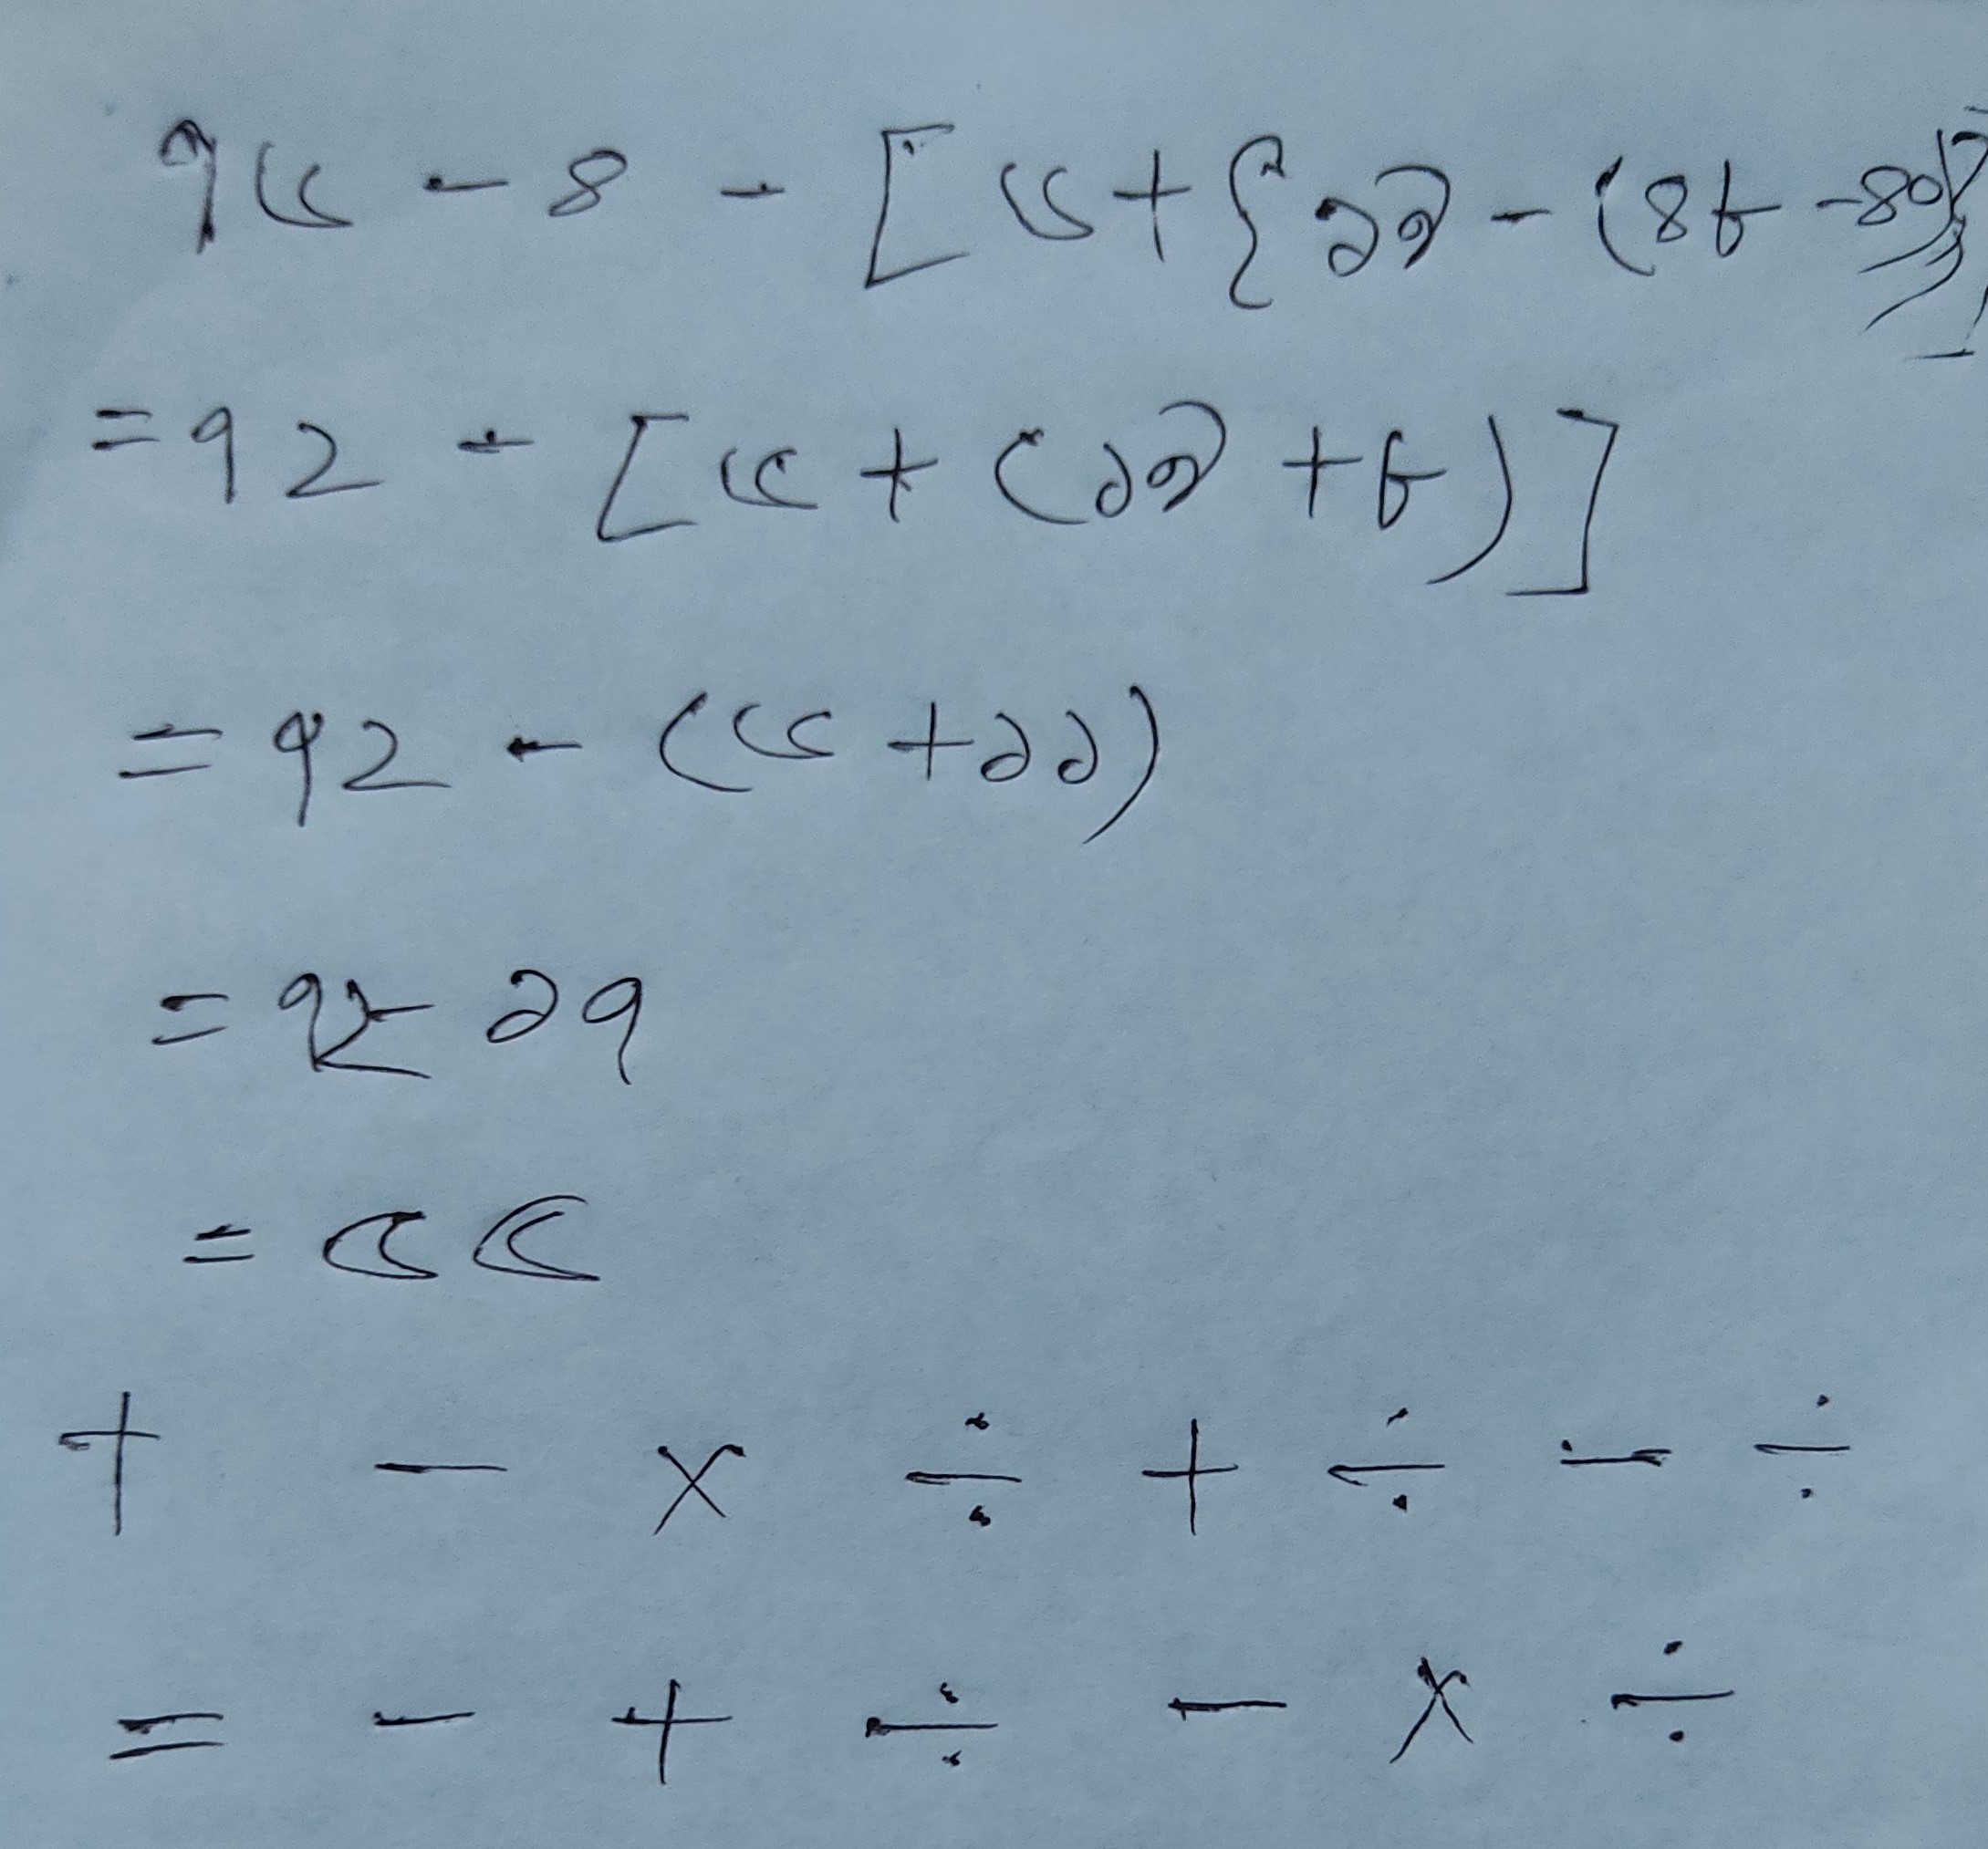 ৭৬ - ৪ - [৬+{১৯-(৪৮-৪০)}]
=৭২ - [৬ + (১৯ +৮)]
= ৭২ - (৬ +১১)
= ৭২- ১৭
= ৫৫
+ - × ÷ + ÷ - ÷
= - + ÷ - × ÷